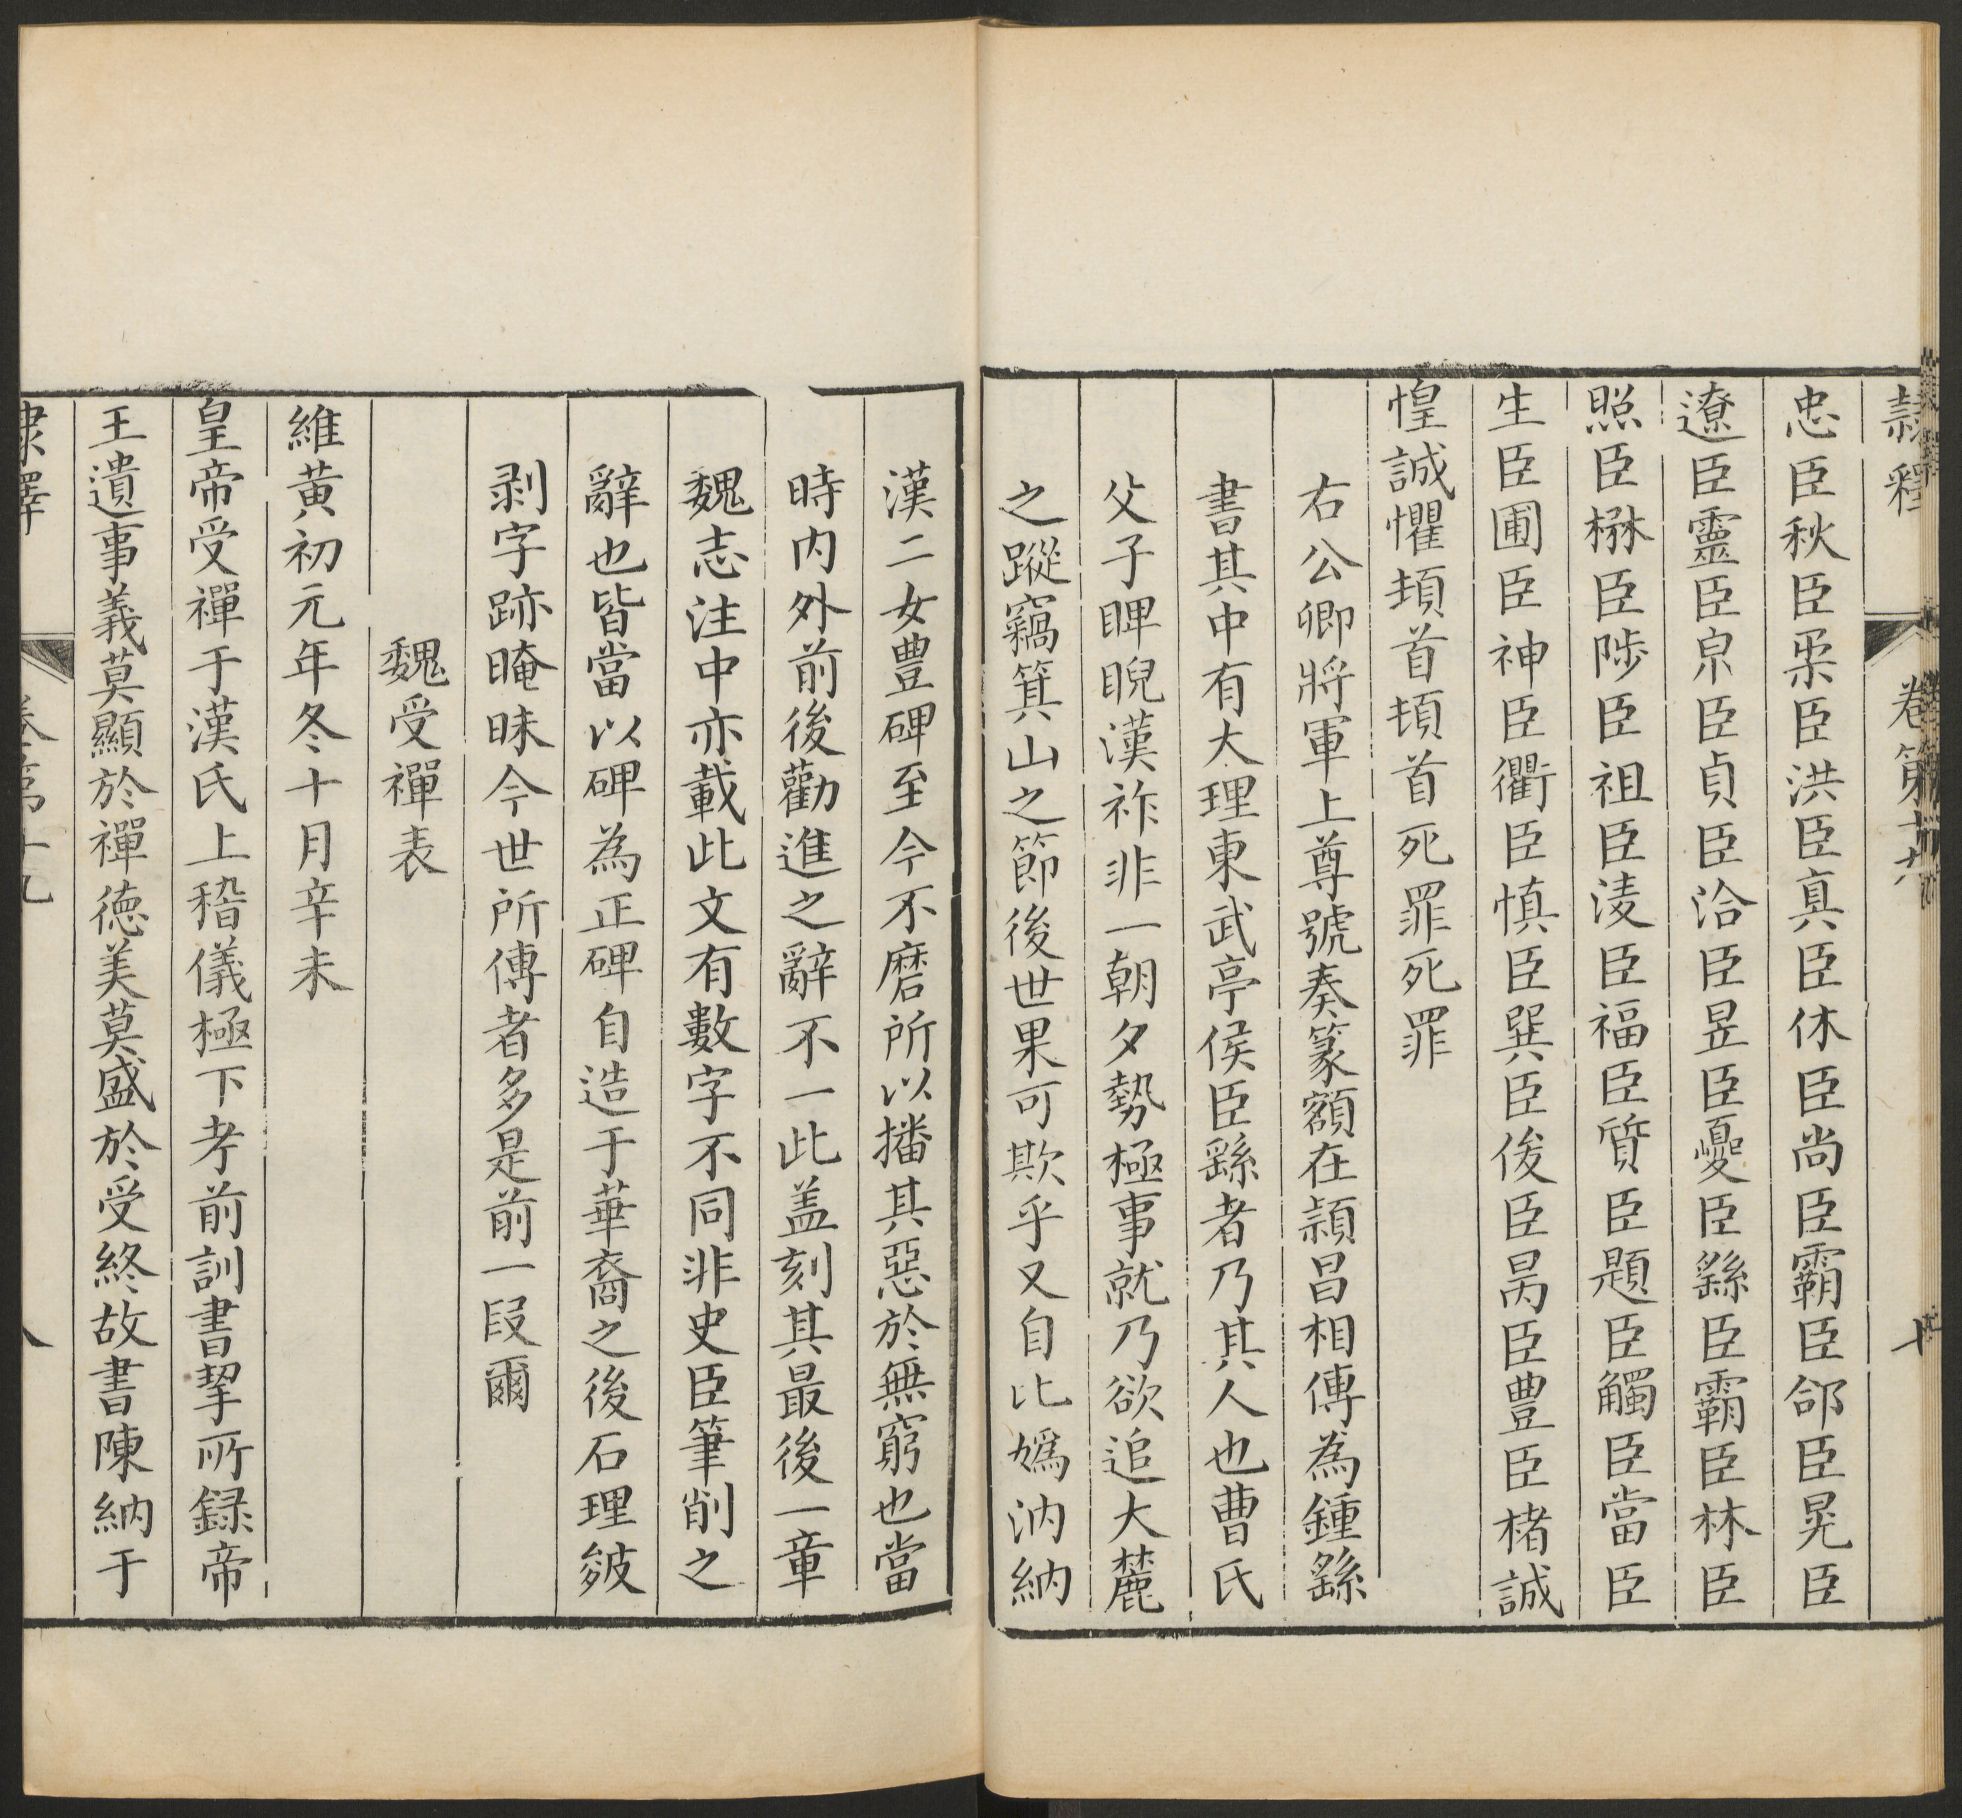 隸釋 卷第十九 七
忠臣秋臣柔臣洪臣真臣休臣尚臣霸臣郃臣晃臣
遼臣靈臣㒷臣貞臣洽臣昱臣夔臣繇臣霸臣林臣
照臣楙臣陟臣祖臣淩臣福臣質臣題臣觸臣當臣
生臣圃臣神臣衢臣慎臣巽臣俊臣昺臣豊臣楮誠
惶誠懼頓首頓首死罪死罪
右公卿將軍上尊號奏篆額在潁昌相傳為鍾繇
書其中有大理東武亭侯臣繇者乃其人也曹氏
父子睥睨漢祚非一朝夕勢極事就乃欲追大麓
之蹤竊箕山之節後世果可欺乎又自比嬀汭納
漢二女豊碑至今不磨所以播其惡於無窮也當
時内外前後勸進之辭不一此盖刻其最後一章
魏志注中亦載此文有數字不同非史臣筆削之
辭也皆當以碑為正碑自造于華裔之後石理皴
剥字跡晻昧今世所傳者多是前一段爾
魏受禪表
維黃初元年冬十月辛未
皇帝受禪于漢氏上稽儀極下考前訓書挈所録帝
王遺事義莫顯於禪德美莫盛於受終故書陳納于
隸釋 卷第十九 八